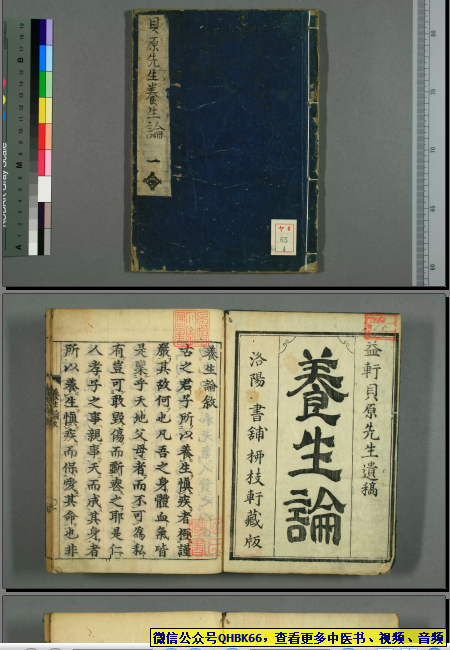 貝原先生養生論
一
65
1
益軒貝原先生遺稿
養生論
洛陽 書舗 柳枝軒藏版
養生論敘
古之君子所以養生愼疾者極謹
嚴其故何也凡吾之身體血氣皆
是稟乎天地父母者而不可為私
有豈可敢毀傷而斷喪之耶是仁
人孝子之事親事天而成其身者
所以養生愼疾而保愛其命也非
微信公众号QHBK66，查看更多中医书、视频、音频